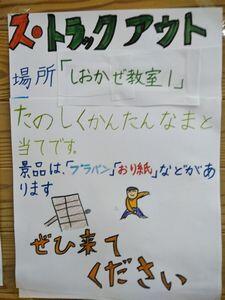 ス・トラックアウト
場所「しおかぜ教室1」
たのしくかんたんなまと
当てです。
景品は、「プラバン」「おり紙」などがあ
ります
ぜひ来て
ください